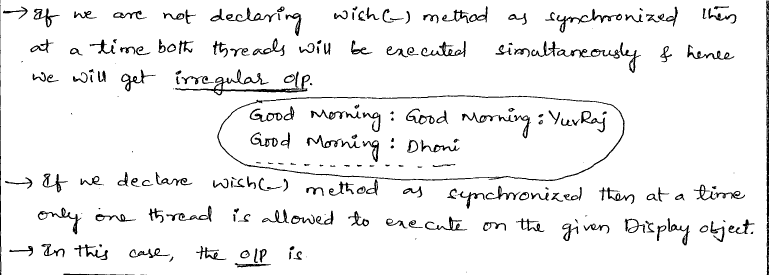 → If we are not declaring wish(-) method as synchronized then
at a time both threads will be executed simultaneously & hence
we will get irregular o/p.
Good Morning : Good Morning : YuvRaj
Good Morning : Dhoni
→ If we declare wish(-) method as synchronized then at a time
only one thread is allowed to execute on the given Display object.
→ In this case, the O/P is